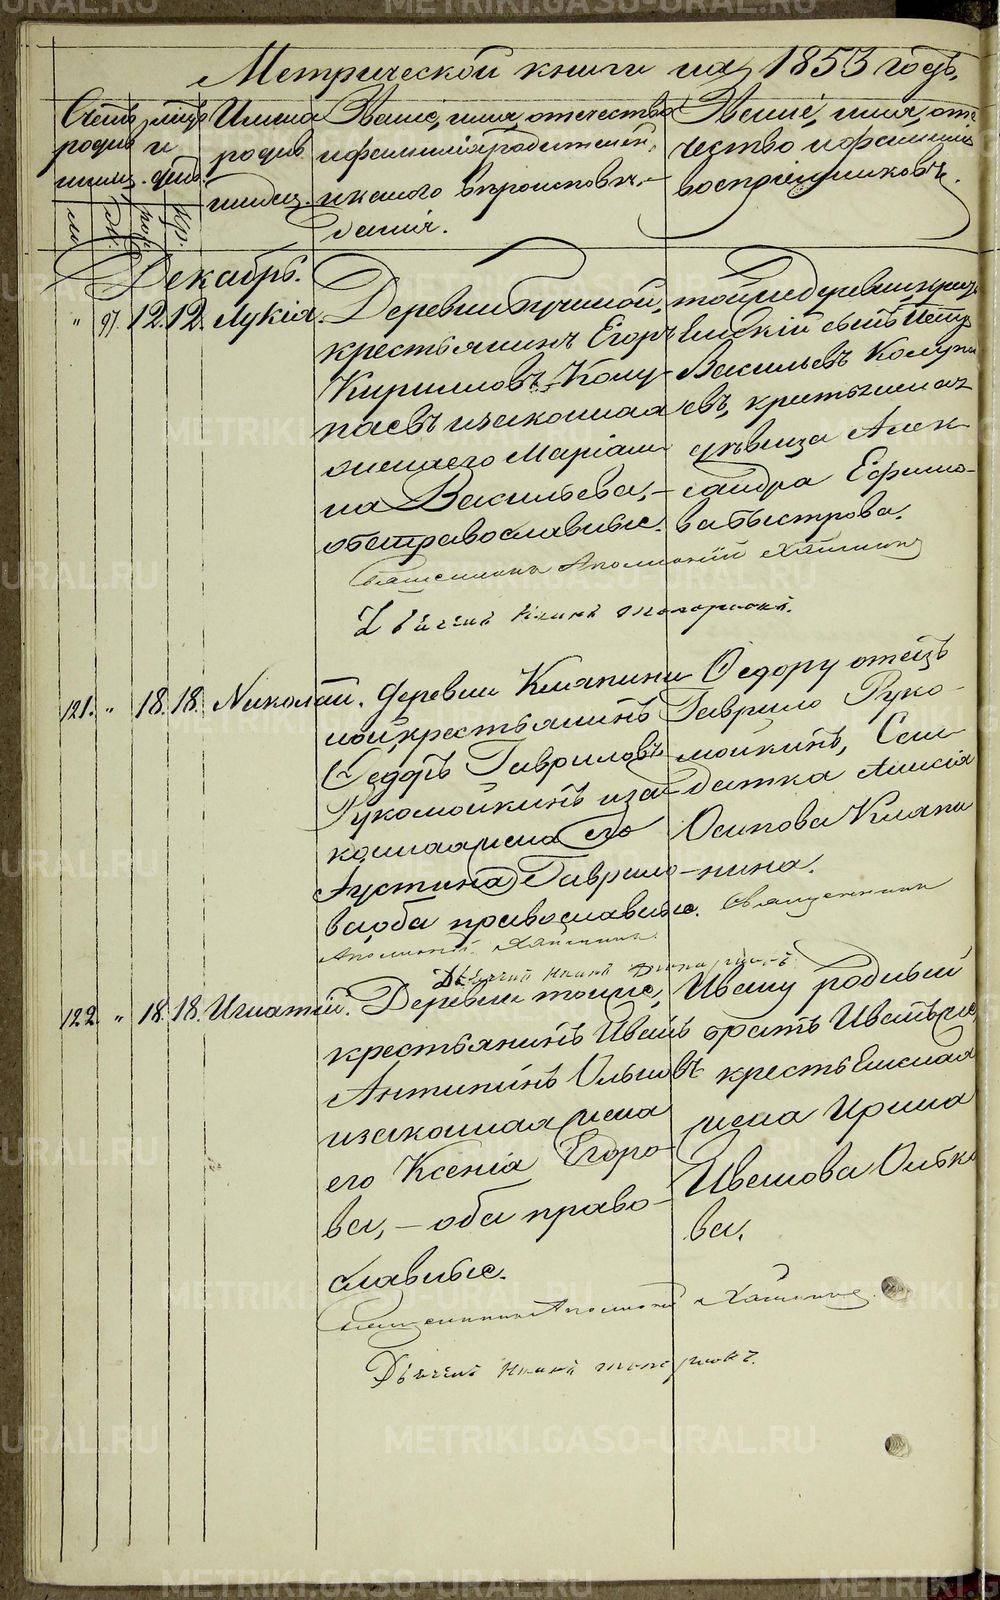 Метрической книги на 1853 годъ.
Счетъ родив шихъ.
м. ж.
месяцъ и день.
рож. кр.
Имена родив шихся.
Званіе, имя, отечество
и фамилія родителей,
и какого вѣроисповѣ-
данія.
Званіе, имя, оте
чество и фамилія
воспріемниковъ.
Декабрь.
" 97. 12. 12. Лукія.
Деревни
крестьянинъ Егоръ
Кирилловъ Колу-
паевъ и законная
жена его Маріам-
на Васильева, –
оба православные.
той же деревни
сынъ Петръ
Васильевъ Колупа
евъ, крестьянская
дѣвица Алек-
сандра Ефимо-
ва Быстрова.
Священникъ Аполлоній
Дьячекъ Иоаннъ
121. " 18. 18. Николай.
Деревни Кляпини
ной крестьянинъ
Ѳедоръ Гавриловъ
Рукомойкинъ и за-
конная жена его
Іустина Гаврило-
ва, оба православные.
Ѳедору отецъ
Гаврило Руко-
мойкинъ, Сол-
датка Анисія
Осипова Кляпи
нина.
Священникъ
Аполлоній
Дьячекъ Иоаннъ
122. " 18. 18. Игнатій.
Деревни тойже,
крестьянинъ Иванъ
Антипинъ Ольковъ
и законная жена
его Ксенія Егоро-
ва, – оба право-
славные.
Ивану родный
братъ Иванъ же,
крестьянская
жена Ирина
Иванова Олько
ва.
Священникъ Аполлоній
Дьячекъ Иоаннъ
METRIKI.GASO-URAL.RU